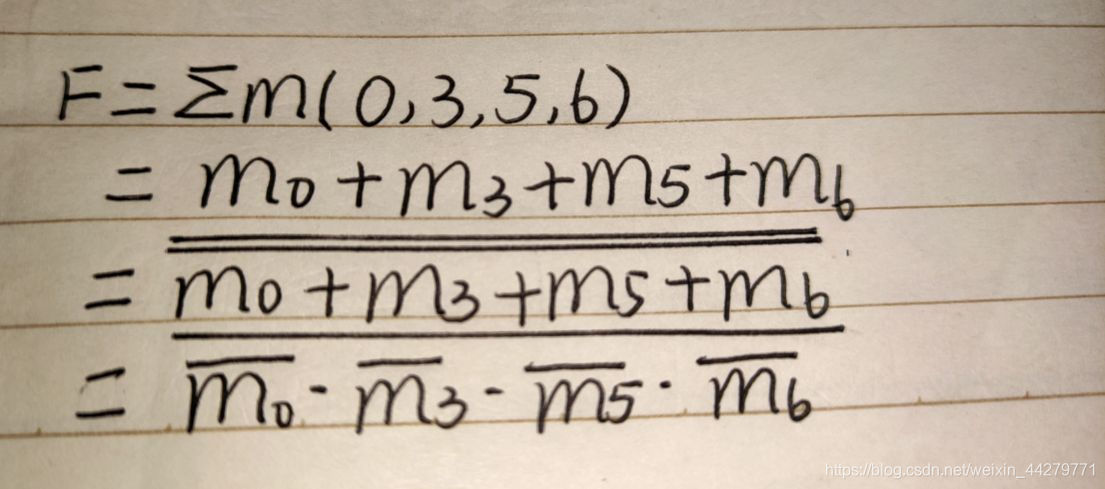 F = Σm(0,3,5,6)
= m₀ + m₃ + m₅ + m₆
= \overline{\overline{m₀ + m₃ + m₅ + m₆}}
= \overline{\overline{m₀} · \overline{m₃} · \overline{m₅} · \overline{m₆}}
https://blog.csdn.net/weixin_44279771